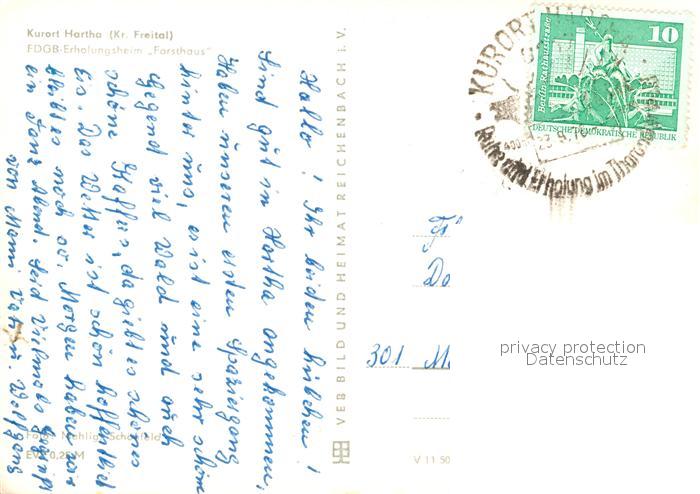 Kurort Hartha (Kr. Freital)
FDGB-Erholungsheim „Forsthaus"
Halo! Ihr beiden hübschen!
Sind gut in Hartha angekommen,
Haben unseren ersten Spaziergang
hinter uns, es ist eine sehr schöne
Gegend viel Wald und auch
schöne Kaffees, da giebt es schönes
Eis. Das Wetter ist schön hoffentlich
bleibt es noch so. Morgen haben wir
ein Tanz Abend. Seid Vielmals Gegrüßt
von Mami Vati u. Wolfgang
Foto: Mehlig, Schönfeld
EVP 0,25 M
VEB BILD UND HEIMAT REICHENBACH i. V.
V 11 50
KURORT HARTHA
23.9.
Ruhe und Erholung im Tharandter
Berlin, Rathausstraße
10
DEUTSCHE DEMOKRATISCHE REPUBLIK
Do
301 M
privacy protection
Datenschutz